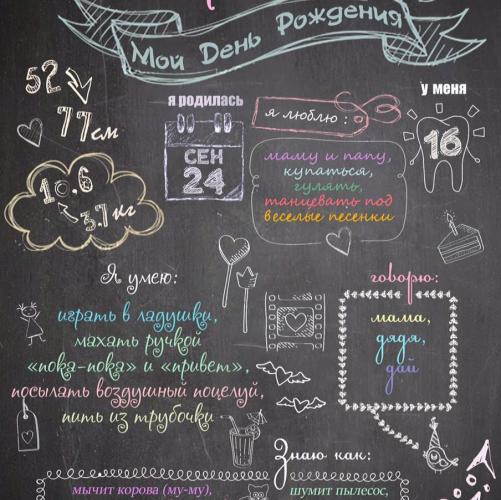 Мой День Рождения
52
77 см
я родилась
СЕН
24
я люблю :
у меня
16
10.6
3.7 кг
маму и папу,
купаться,
гулять,
танцевать под
веселые песенки
Я умею:
играть в ладушки,
махать ручкой
«пока-пока» и «привет»,
посылать воздушный поцелуй,
пить из трубочки
говорю:
мама,
дядя,
дай
Знаю как:
мычит корова (му-му),
шумит пылесос,